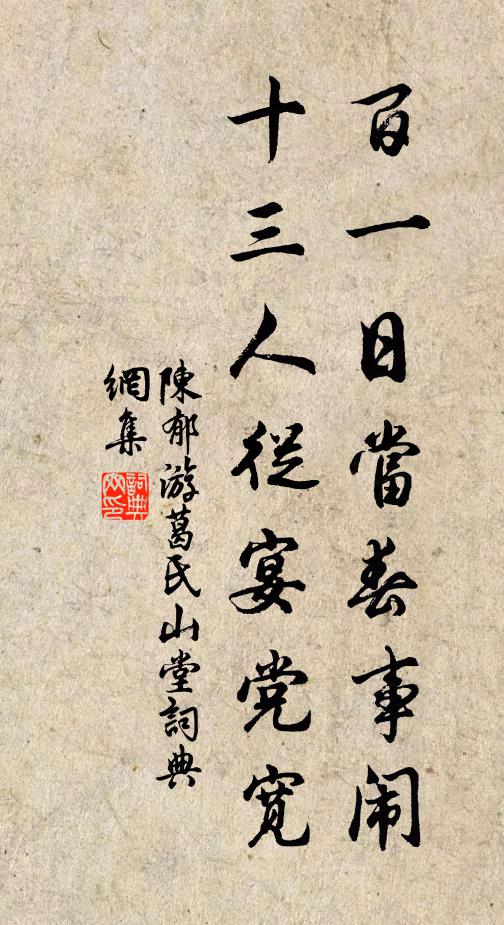 百一日當春事闹
十三人從宴党寬
陳郁游葛氏山堂詞典
網集
詞典網印